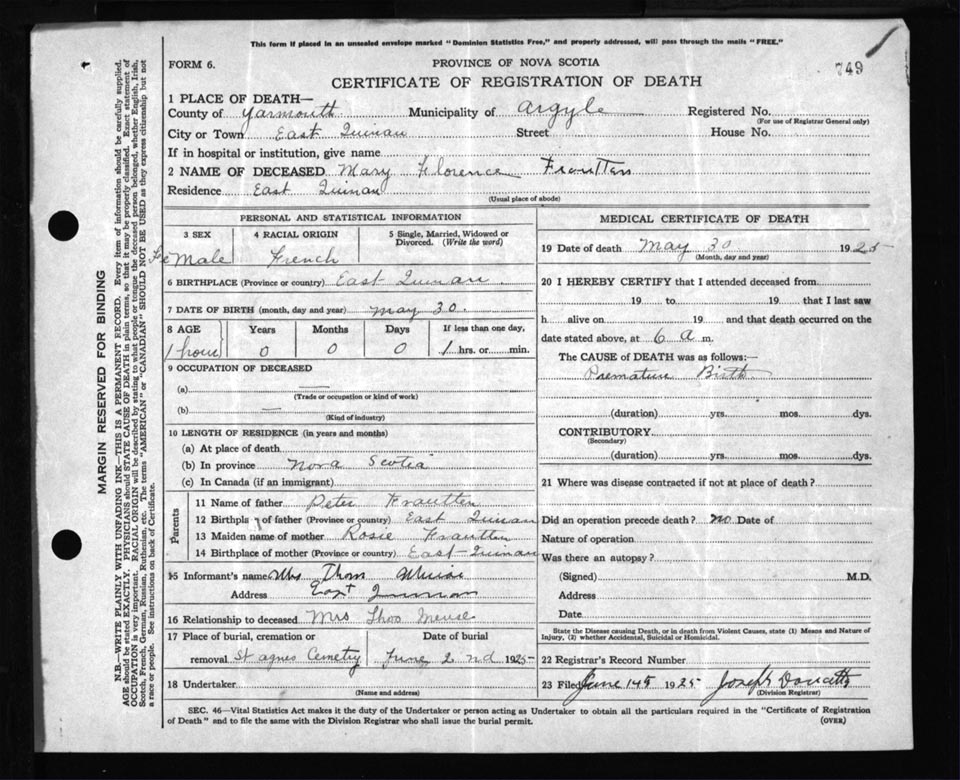 This form if placed in an unsealed envelope marked "Dominion Statistics Free," and properly addressed, will pass through the mails "FREE."
FORM 6.
PROVINCE OF NOVA SCOTIA
749
CERTIFICATE OF REGISTRATION OF DEATH
1 PLACE OF DEATH—
County of Yarmouth Municipality of Argyle Registered No.
(For use of Registrar General only)
City or Town East Quinan Street House No.
If in hospital or institution, give name
2 NAME OF DECEASED Mary Florence Frautten
Residence East Quinan
(Usual place of abode)
PERSONAL AND STATISTICAL INFORMATION
3 SEX 4 RACIAL ORIGIN 5 Single, Married, Widowed or Divorced. (Write the word)
Female French
6 BIRTHPLACE (Province or country) East Quinan
7 DATE OF BIRTH (month, day and year) May 30
8 AGE Years Months Days If less than one day,
1 hour 0 0 0 1 hrs. or min.
9 OCCUPATION OF DECEASED
(a) —
(Trade or occupation or kind of work)
(b) —
(Kind of industry)
10 LENGTH OF RESIDENCE (in years and months)
(a) At place of death
(b) In province Nova Scotia
(c) In Canada (if an immigrant)
Parents
11 Name of father Peter Frautten
12 Birthplace of father (Province or country) East Quinan
13 Maiden name of mother Rosie Frautten
14 Birthplace of mother (Province or country) East Quinan
15 Informant's name Mrs Thom
Address East Quinan
16 Relationship to deceased Mrs Thos Meuse
17 Place of burial, cremation or Date of burial
removal St agnes Cemetry June 2nd 1925
18 Undertaker
(Name and address)
MEDICAL CERTIFICATE OF DEATH
19 Date of death May 30 1925
(Month, day and year)
20 I HEREBY CERTIFY that I attended deceased from
19 to 19 that I last saw
h alive on 19 and that death occurred on the
date stated above, at 6 a m.
The CAUSE of DEATH was as follows:—
Premature Birth
(duration) yrs. mos. dys.
CONTRIBUTORY
(Secondary)
(duration) yrs. mos. dys.
21 Where was disease contracted if not at place of death?
Did an operation precede death? no Date of
Nature of operation
Was there an autopsy?
(Signed) M.D.
Address
Date
State the Disease causing Death, or in death from Violent Causes, state (1) Means and Nature of
Injury, (2) whether Accidental, Suicidal or Homicidal.
22 Registrar's Record Number
23 Filed June 14th 1925 Joseph
(Division Registrar)
SEC. 46—Vital Statistics Act makes it the duty of the Undertaker or person acting as Undertaker to obtain all the particulars required in the "Certificate of Registration
of Death" and to file the same with the Division Registrar who shall issue the burial permit.
(OVER)
MARGIN RESERVED FOR BINDING
N.B.—WRITE PLAINLY WITH UNFADING INK—THIS IS A PERMANENT RECORD. Every item of information should be carefully supplied.
AGE should be stated EXACTLY. PHYSICIANS should STATE CAUSE OF DEATH in plain terms, so that it may be properly classified. Exact statement of
OCCUPATION is very important. RACIAL ORIGIN will be described by stating to what people or tongue the deceased person belonged, whether English, Irish,
Scotch, French, German, Russian, Ruthenian, etc. The terms "AMERICAN" or "CANADIAN" SHOULD NOT BE USED as they express citizenship but not
a race or people. See instructions on back of Certificate.